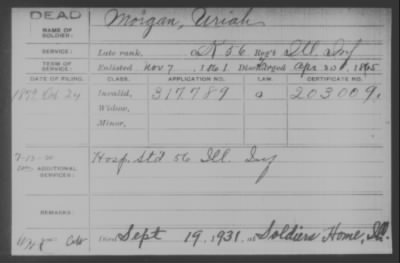 DEAD
NAME OF SOLDIER:
Morgan, Uriah
SERVICE:
Late rank, K 56 Reg't Ill. Inf
TERM OF SERVICE:
Enlisted Nov 7 1861. Discharged Apr 30, 1865
DATE OF FILING. CLASS. APPLICATION NO. LAW. CERTIFICATE NO.
1879 Oct 24 Invalid, 317.789 203009.
Widow,
Minor,
Hosp. Std 56 Ill. Inf
ADDITIONAL SERVICES:
REMARKS:
Died Sept 19, 1931, at Soldiers Home, Ill.